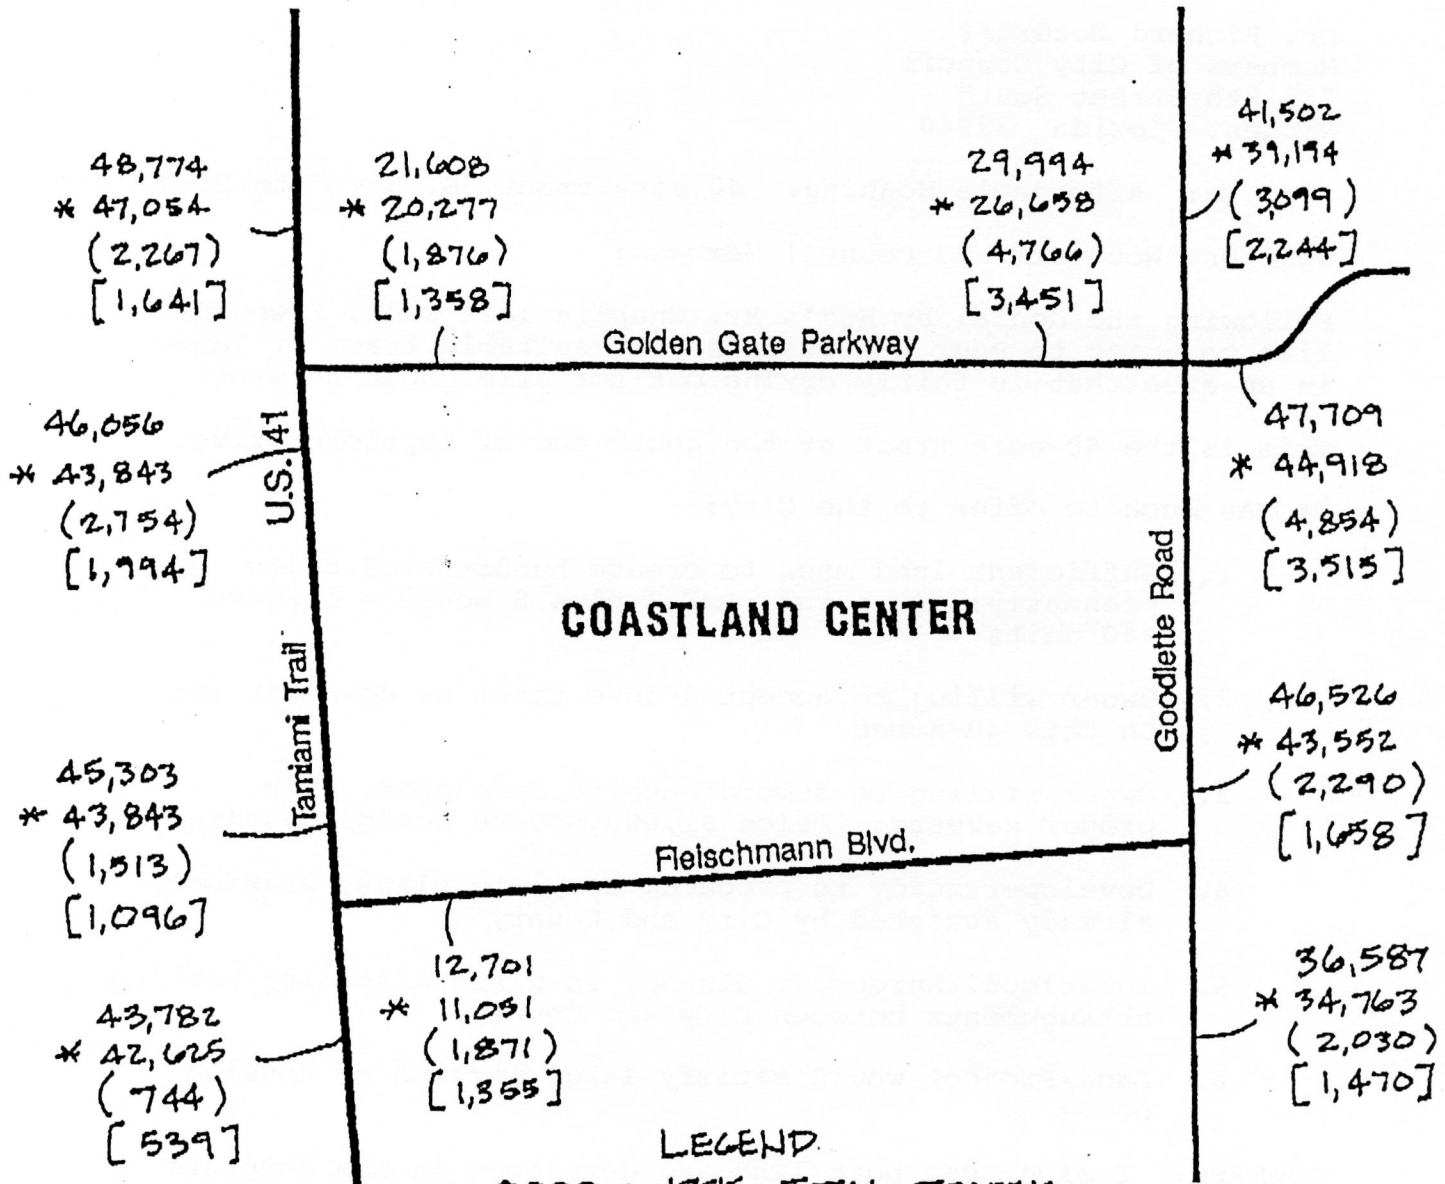 48,774
* 47,054
(2,267)
[1,641]
21,608
* 20,277
(1,876)
[1,358]
29,994
* 26,658
(4,766)
[3,451]
41,502
* 39,194
(3,099)
[2,244]
Golden Gate Parkway
46,056
* 43,843
(2,754)
[1,994]
U.S. 41
47,709
* 44,918
(4,854)
[3,515]
COASTLAND CENTER
Goodlette Road
Tamiami Trail
46,526
* 43,552
(2,290)
[1,658]
45,303
* 43,843
(1,513)
[1,096]
Fleischmann Blvd.
12,701
* 11,051
(1,871)
[1,355]
36,587
* 34,763
(2,030)
[1,470]
43,782
* 42,625
(744)
[539]
LEGEND